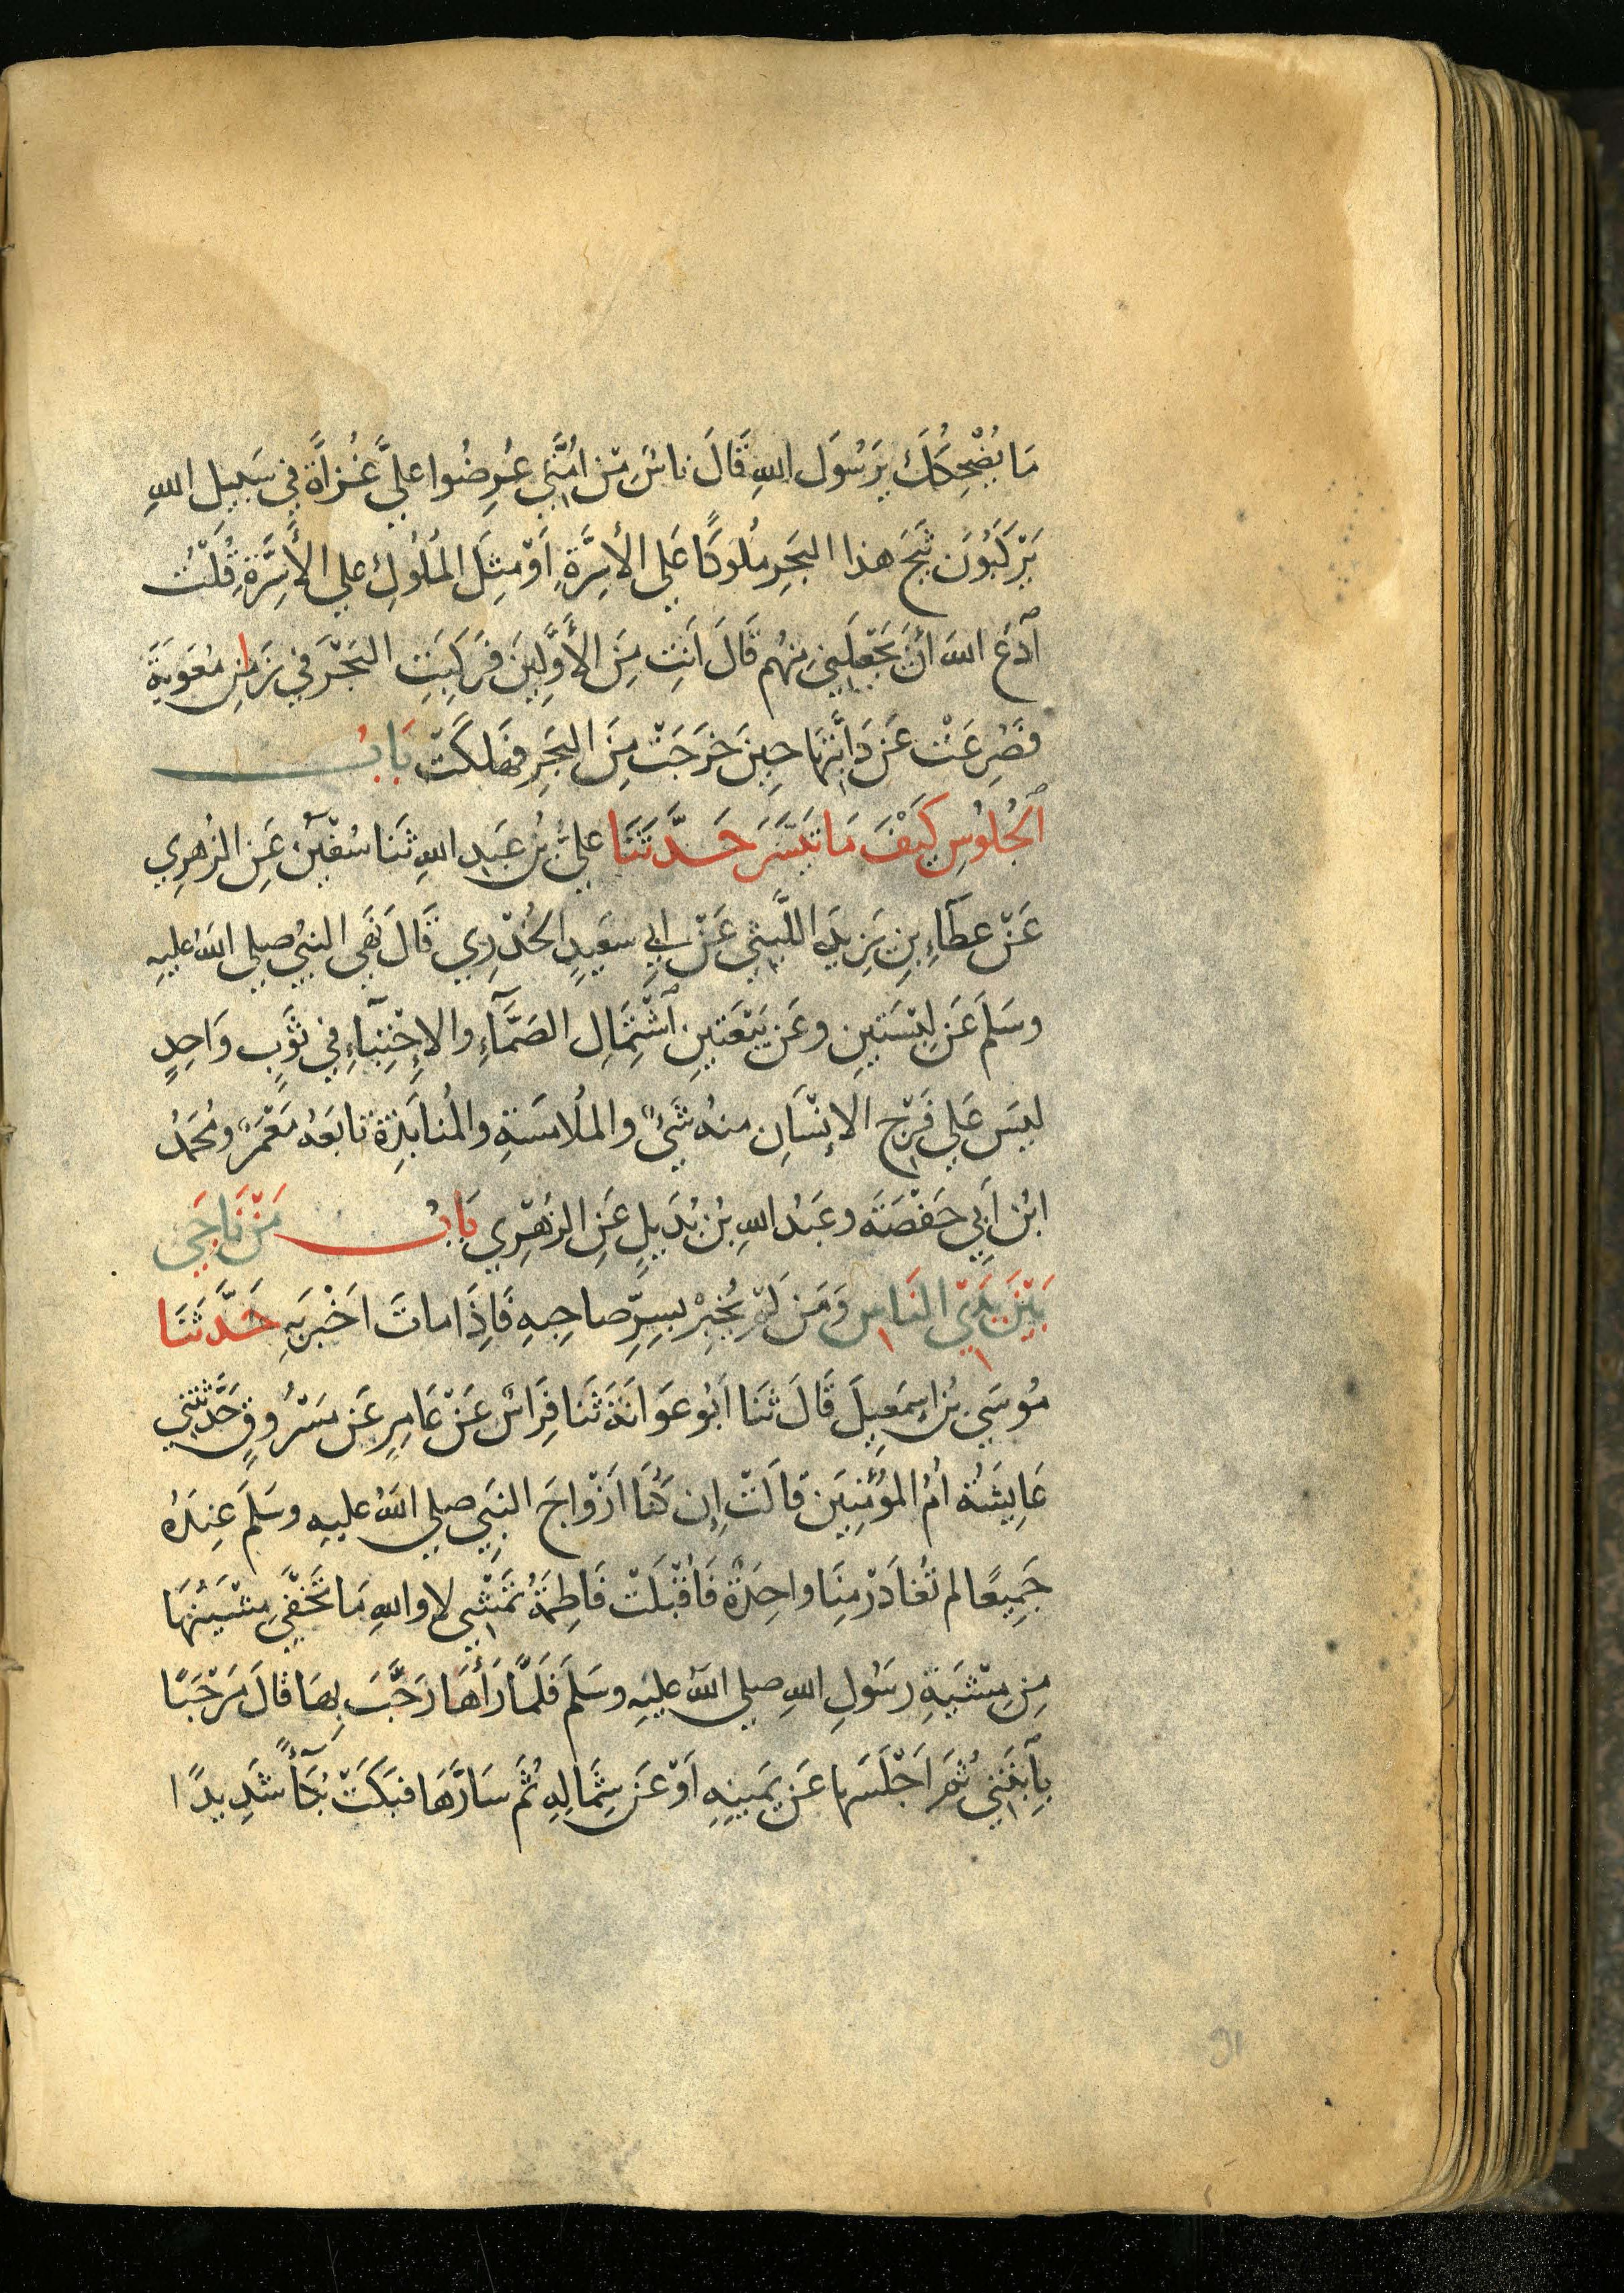 مَا يُضْحِكُكَ يَرَسُولَ اللهِ قَالَ نَاسٌ مِّنْ امَّتِي عُرِضُوا عليَّ غُزاةً في سَبيل اللهِ
يَرْكَبُونَ ثَبَجَ هذا البَحرِ مُلوكًا عَلي الأسِرَّةِ أوْ مِثلَ المُلُوكِ علي الأسِرَّةِ قُلْتُ
ادْعُ اللهَ أنْ يَجْعَلَني مِنهُم قَالَ أنتِ مِنَ الأَوَّلِينَ فَرَكِبَتِ البَحْرَ في زَمانِ مُعَوِيَةَ
فَصُرِعَتْ عَنْ دَابَّتِهَا حِينَ خَرَجَتْ مِنَ البَحرِ فهَلكَتْ بَابُ
الجُلوُسِ كَيْفَ مَا تَيَسَّرَ حَدَّثَنَا عليُّ بْنُ عَبدِ اللهِ ثَنَا سُفْيَنُ عَنِ الزُهرِي
عَنْ عطَآءِ بنِ يَزِيدَ اللَّيثِي عَنْ ابِي سَعِيدٍ الخُدْرِي قَالَ نَهَي النبيُ صلي اللهُ عليهِ
وسَلمَ عَنِ لِبْسَتَينِ وعَن بَيْعَتَينِ اشْتِمَالِ الصَّمَّآءِ والاِحْتِبآءِ في ثَوبٍ وَاحِدٍ
ليسَ عَلي فَرْجِ الاِنْسَانِ منهُ شَيْءٌ والمُلامَسَةِ والمُنابَذةِ تابَعَهُ مَعْمَرٌ ومُحَمدُ
ابْنُ أَبِي حَفْصَةَ وعَبْدُ اللهِ بْنُ بُدَيلٍ عَنِ الزهْرِي بَابُ مَنْ نَاجَي
بَيْنَ يَدَيِ النَاسِ وَمَن لَمْ يُخْبِرْ بسِرِّ صاحِبهِ فَاِذَا ماتَ اخْبرَ بهِ حَدَّثَنَا
مُوسَي بْنُ اِسمَعِيلَ قَالَ ثَنَا أبُو عَوَانَةَ ثَنَا فِرَاسٌ عَنْ عَامِرٍ عَن مَسْرُوقٍ حَدَّثَتْنِي
عَايِشَةُ أمُ المؤُمِنِينَ قَالَتْ اِن كُنَّا ازْواجَ النبيِ صلي اللهُ عليهِ وسَلمَ عِندَهُ
جَمِيعًا لم تُغادَرْ مِنَا واحِدَةٌ فَاقْبَلَتْ فَاطِمَةُ تَمْشِي لا واللهِ مَا تَخفَي مِشْيَتُهَا
مِن مِشْيَةِ رسَولِ اللهِ صلي اللهُ عليهِ وسَلمَ فَلَمَّا رَأهَا رَحَّبَ بِهَا قالَ مَرْحَبًا
بِابْنَتِي ثُمَ اجْلَسَها عَن يَمينِهِ اوْ عَن شِمَالِهِ ثُمَ سَارَّهَا فبَكَتْ بُكَآءً شَدِيدًا